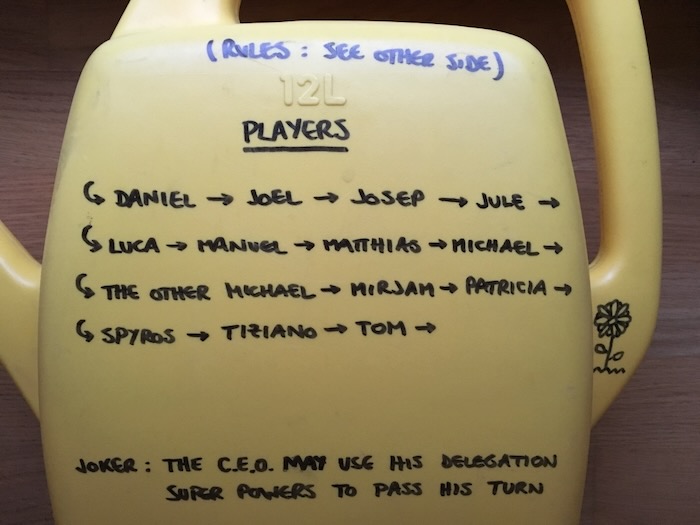 (RULES : SEE OTHER SIDE)
12L
PLAYERS
↳ DANIEL → JOEL → JOSEP → JULE →
↳ LUCA → MANUEL → MATTHIAS → MICHAEL →
↳ THE OTHER MICHAEL → MIRJAM → PATRICIA →
↳ SPYROS → TIZIANO → TOM →
JOKER : THE C.E.O. MAY USE HIS DELEGATION
SUPER POWERS TO PASS HIS TURN